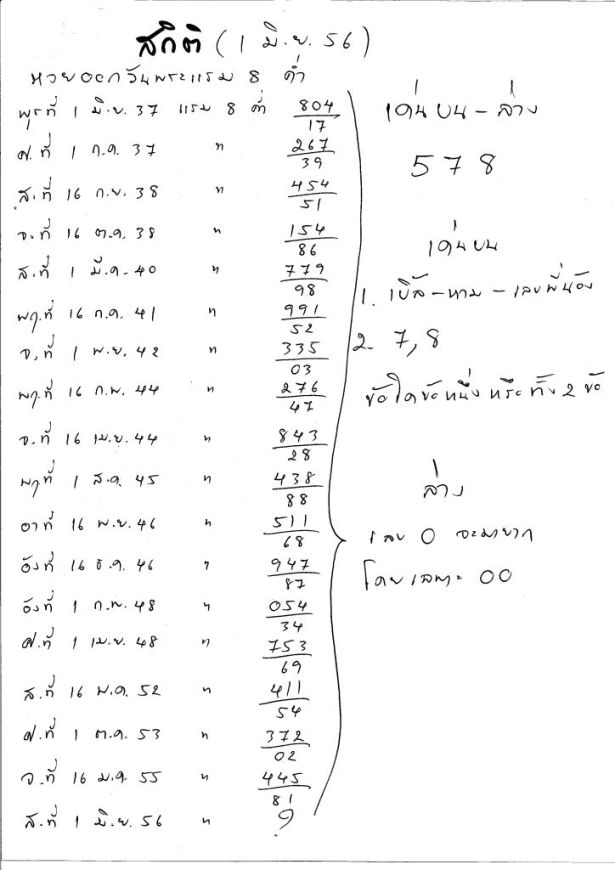 สถิติ (1 มิ.ย. 56)
หวยออกวันพระแรม 8 ค่ำ
พุธที่ 1 มิ.ย. 37 แรม 8 ค่ำ 804
17
ศ.ที่ 1 ก.ค. 37 " 267
39
ส.ที่ 16 ก.ย. 38 " 454
51
จ.ที่ 16 ต.ค. 38 " 154
86
ส.ที่ 1 มี.ค. 40 " 779
98
พฤ.ที่ 16 ก.ค. 41 " 991
52
จ.ที่ 1 พ.ย. 42 " 335
03
พฤ.ที่ 16 ก.พ. 44 " 276
47
จ.ที่ 16 เม.ย. 44 " 843
28
พฤที่ 1 ส.ค. 45 " 438
88
อาที่ 16 พ.ย. 46 " 511
68
อังที่ 16 ธ.ค. 46 " 947
87
อังที่ 1 ก.พ. 48 " 054
34
ศ.ที่ 1 เม.ย. 48 " 753
69
ส.ที่ 16 พ.ค. 52 " 411
54
ศ.ที่ 1 ต.ค. 53 " 372
02
จ.ที่ 16 ม.ค. 55 " 445
81
ส.ที่ 1 มิ.ย. 56 " ?
เด่นบน - ล่าง
5 7 8
เด่นบน
1. เบิ้ล - หาม - เลขพี่น้อง
2. 7, 8
ข้อใดข้อหนึ่ง หรือทั้ง 2 ข้อ
ล่าง
เลข 0 จะมายาก
โดยเฉพาะ 00